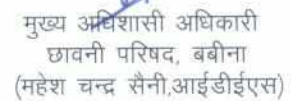 मुख्य अधिशासी अधिकारी
छावनी परिषद, बबीना
(महेश चन्द्र सैनी,आईडीईएस)